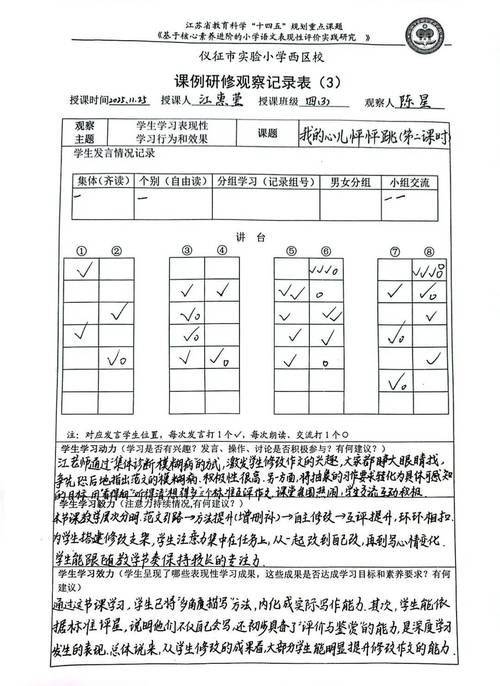 江苏省教育科学“十四五”规划重点课题
《基于核心素养进阶的小学语文表现性评价实践研究 》
仪征市实验小学西区校
课例研修观察记录表（3）
授课时间2025.11.25 授课人 江惠莹 授课班级 四(3) 观察人 陈星
观察主题 学生学习表现性学习行为和效果 课题 我的心儿怦怦跳(第二课时)
学生发言情况记录
集体(齐读) 个别（自由读） 分组学习（记录组号） 男女分组 小组交流
一 一 一一
讲 台
① ② ③ ④ ⑤ ⑥ ⑦ ⑧
注：对应发言学生位置，每次发言打1个✓，每次朗读、交流打1个○
学生学习动力（学习是否有兴趣？发言、操作、讨论是否积极参与？有何建议？）
江老师通过“集体诊断模糊病”的方式，激发学生修改作文的兴趣，大家都睁大眼睛找，
争先恐后地指出范文的模糊病，积极性很高。另一方面，将抽象的习作要求转化为具体可感知
的目标，用“看得见”“听得清”“想得多”三个标准互评作文，课堂氛围热闹，学生交流互动积极。
学生学习毅力（注意力持续情况，有何建议？）
本节课教学层次分明，范文引路→方法提升(增删补)→自主修改→互评提升，环环相扣，
为学生搭建修改支架，学生注意力集中在任务上，从一起改到自己改，再到写心情变化，
学生能跟随教学节奏保持较长的专注力。
学生学习效力（学生呈现了哪些表现性学习成果，这些成果是否达成学习目标和素养要求？有何
建议）
通过这节课学习，学生已将“多角度描写”方法，内化成实际写作能力。其次，学生能依
据标准评星，说明他们不仅自己会写，还初步具备了“评价与鉴赏”的能力，是深度学习
发生的表现。总体说来，从学生修改的成果看，大部分学生能明显提升修改作文的能力。